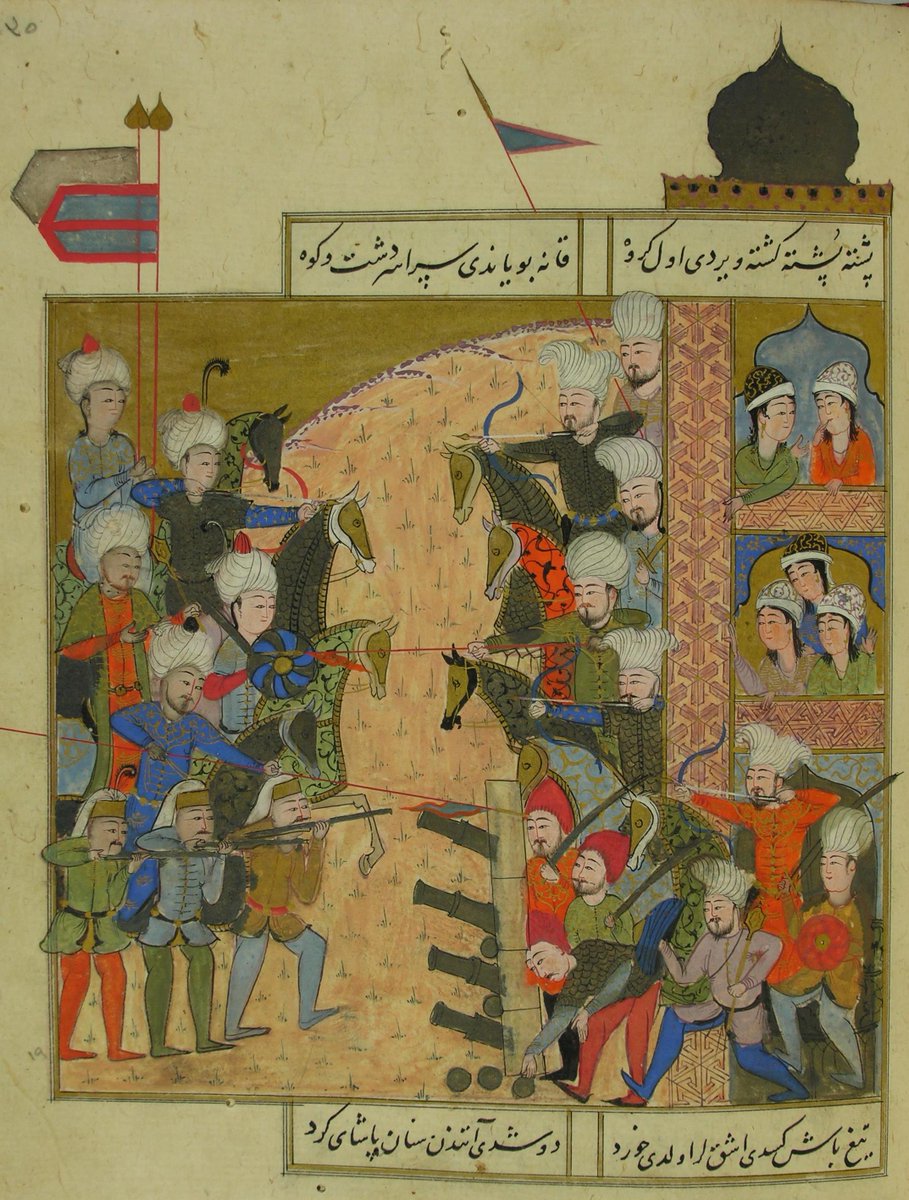 ۵۰
پشته پُشته کشته ویردی اول کروه
قانه بویاندی سراسر دشت و کوه
تیغ باش کسدی اولدی خورد
دوشدی آتندن سنان پاشای کرد